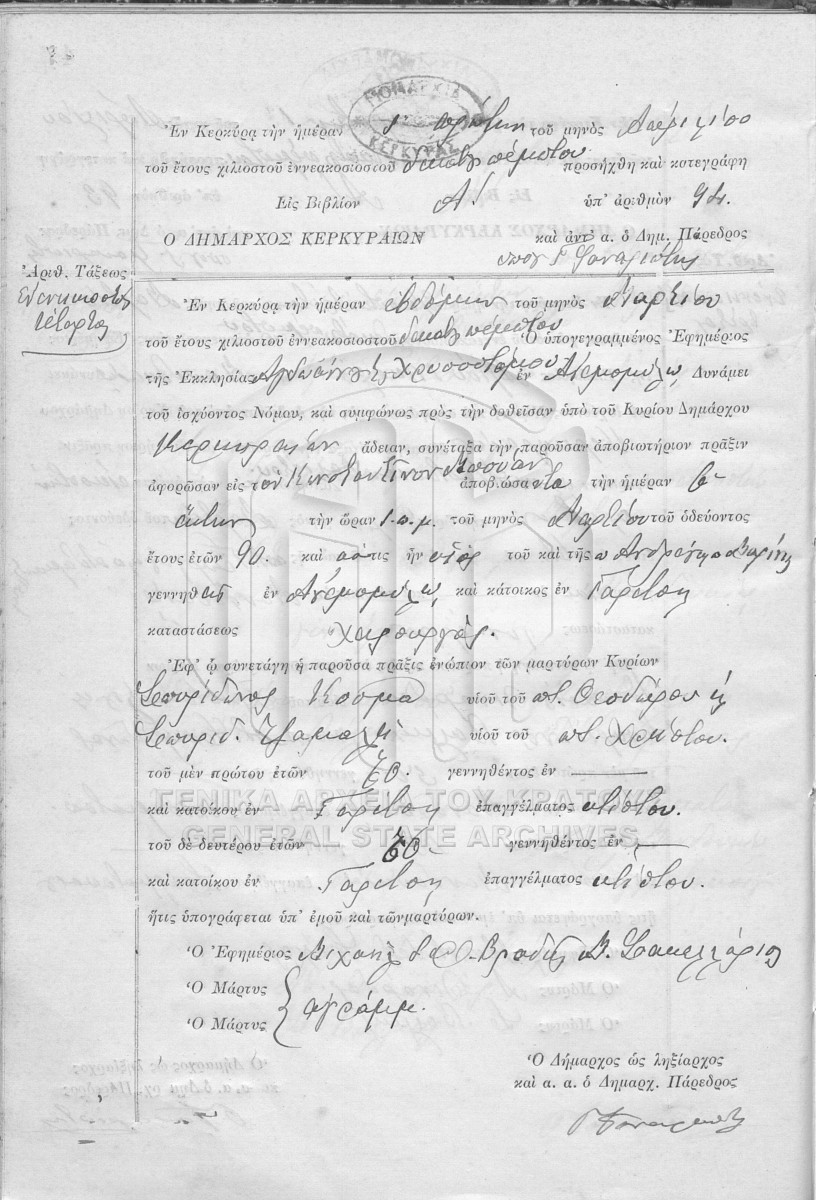 ΜΟΝΑΡΧΙΑ
ΚΕΡΚΥΡΑΣ
Ἐν Κερκύρᾳ τὴν ἡμέραν πρώτην τοῦ μηνὸς Ἀπριλίου
τοῦ ἔτους χιλιοστοῦ ἐννεακοσιοστοῦ δεκάτου πέμπτου προσήχθη καὶ κατεγράφη
Εἰς Βιβλίον Α! ὑπ' ἀριθμὸν 94.
Ο ΔΗΜΑΡΧΟΣ ΚΕΡΚΥΡΑΙΩΝ καὶ ἀντ' α. ὁ Δημ. Πάρεδρος
Ἀριθ. Τάξεως
τέταρτος
Ἐν Κερκύρᾳ τὴν ἡμέραν ἑβδόμην τοῦ μηνὸς Μαρτίου
τοῦ ἔτους χιλιοστοῦ ἐννεακοσιοστοῦ δεκάτου πέμπτου Ὁ ὑπογεγραμμένος Ἐφημέριος
τῆς Ἐκκλησίας Χρυσοστόμου ἐν Ἀνεμομύλῳ, Δυνάμει
τοῦ ἰσχύοντος Νόμου, καὶ συμφώνως πρὸς τὴν δοθεῖσαν ὑπὸ τοῦ Κυρίου Δημάρχου
Κερκυραίων ἄδειαν, συνέταξα τὴν παροῦσαν ἀποβιωτήριον πρᾶξιν
ἀφορῶσαν εἰς τὸν Κωνσταντῖνον ἀποβιώσαντα τὴν ἡμέραν
ἕκτην τὴν ὥραν 1 π. μ. τοῦ μηνὸς Μαρτίου τοῦ ὁδεύοντος
ἔτους ἐτῶν 90. καὶ ὅστις ἦν υἱὸς τοῦ καὶ τῆς π Ἀνδρέου
γεννηθεὶς ἐν Ἀνεμομύλῳ καὶ κάτοικος ἐν Γαρίτσῃ
καταστάσεως Χειρουργός.
Ἐφ' ᾧ συνετάγη ἡ παροῦσα πρᾶξις ἐνώπιον τῶν μαρτύρων Κυρίων
Σπυρίδωνος Κοσμᾶ υἱοῦ τοῦ ποτ. Θεοδώρου
Σπυρίδ. υἱοῦ τοῦ ποτ. Χρήστου.
τοῦ μὲν πρώτου ἐτῶν γεννηθέντος ἐν
καὶ κατοίκου ἐν Γαρίτσῃ ἐπαγγέλματος κτίστου.
τοῦ δὲ δευτέρου ἐτῶν γεννηθέντος ἐν
καὶ κατοίκου ἐν Γαρίτσῃ ἐπαγγέλματος κτίστου.
ἥτις ὑπογράφεται ὑπ' ἐμοῦ καὶ τῶνμαρτύρων.
Ὁ Ἐφημέριος Μιχαὴλ Σακελλάριος
Ὁ Μάρτυς
ἀγράμμ.
Ὁ Μάρτυς
Ὁ Δήμαρχος ὡς ληξίαρχος
καὶ α. α. ὁ Δημαρχ. Πάρεδρος
ΓΕΝΙΚΑ ΑΡΧΕΙΑ ΤΟΥ ΚΡΑΤΟΥΣ
GENERAL STATE ARCHIVES